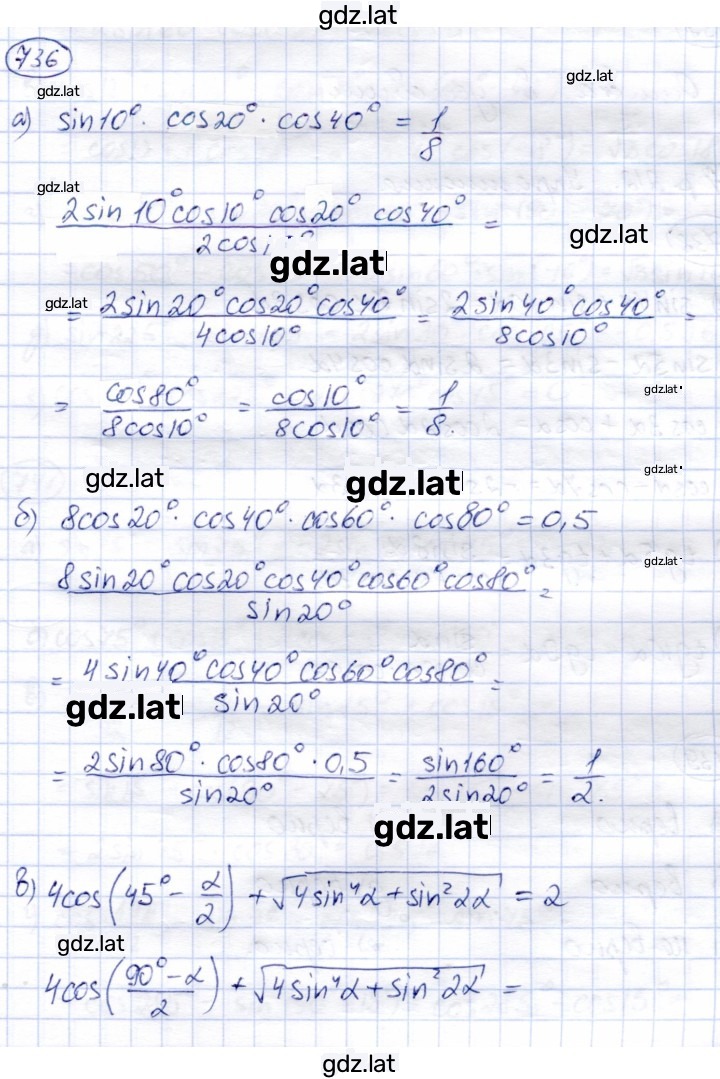 gdz.lat
736
gdz.lat
gdz.lat
а) sin10°· cos20°· cos40° = 1/8
gdz.lat
2sin10°cos10°cos20°cos40° / 2cos =
gdz.lat
gdz.lat
gdz.lat
= 2sin20°cos20°cos40° / 4cos10° = 2sin40°cos40° / 8cos10° =
= cos80° / 8cos10° = cos10° / 8cos10° = 1/8.
gdz.lat
gdz.lat
gdz.lat
gdz.lat
б) 8cos20°· cos40°· cos60°· cos80° = 0,5
gdz.lat
8sin20°cos20°cos40°cos60°cos80° / sin20° =
= 4sin40°cos40°cos60°cos80° / sin20° =
gdz.lat
= 2sin80°· cos80°· 0,5 / sin20° = sin160° / 2sin20° = 1/2.
gdz.lat
в) 4cos(45° - α/2) + √(4sin⁴α + sin²2α) = 2
gdz.lat
4cos((90° - α)/2) + √(4sin⁴α + sin²2α) =
gdz.lat